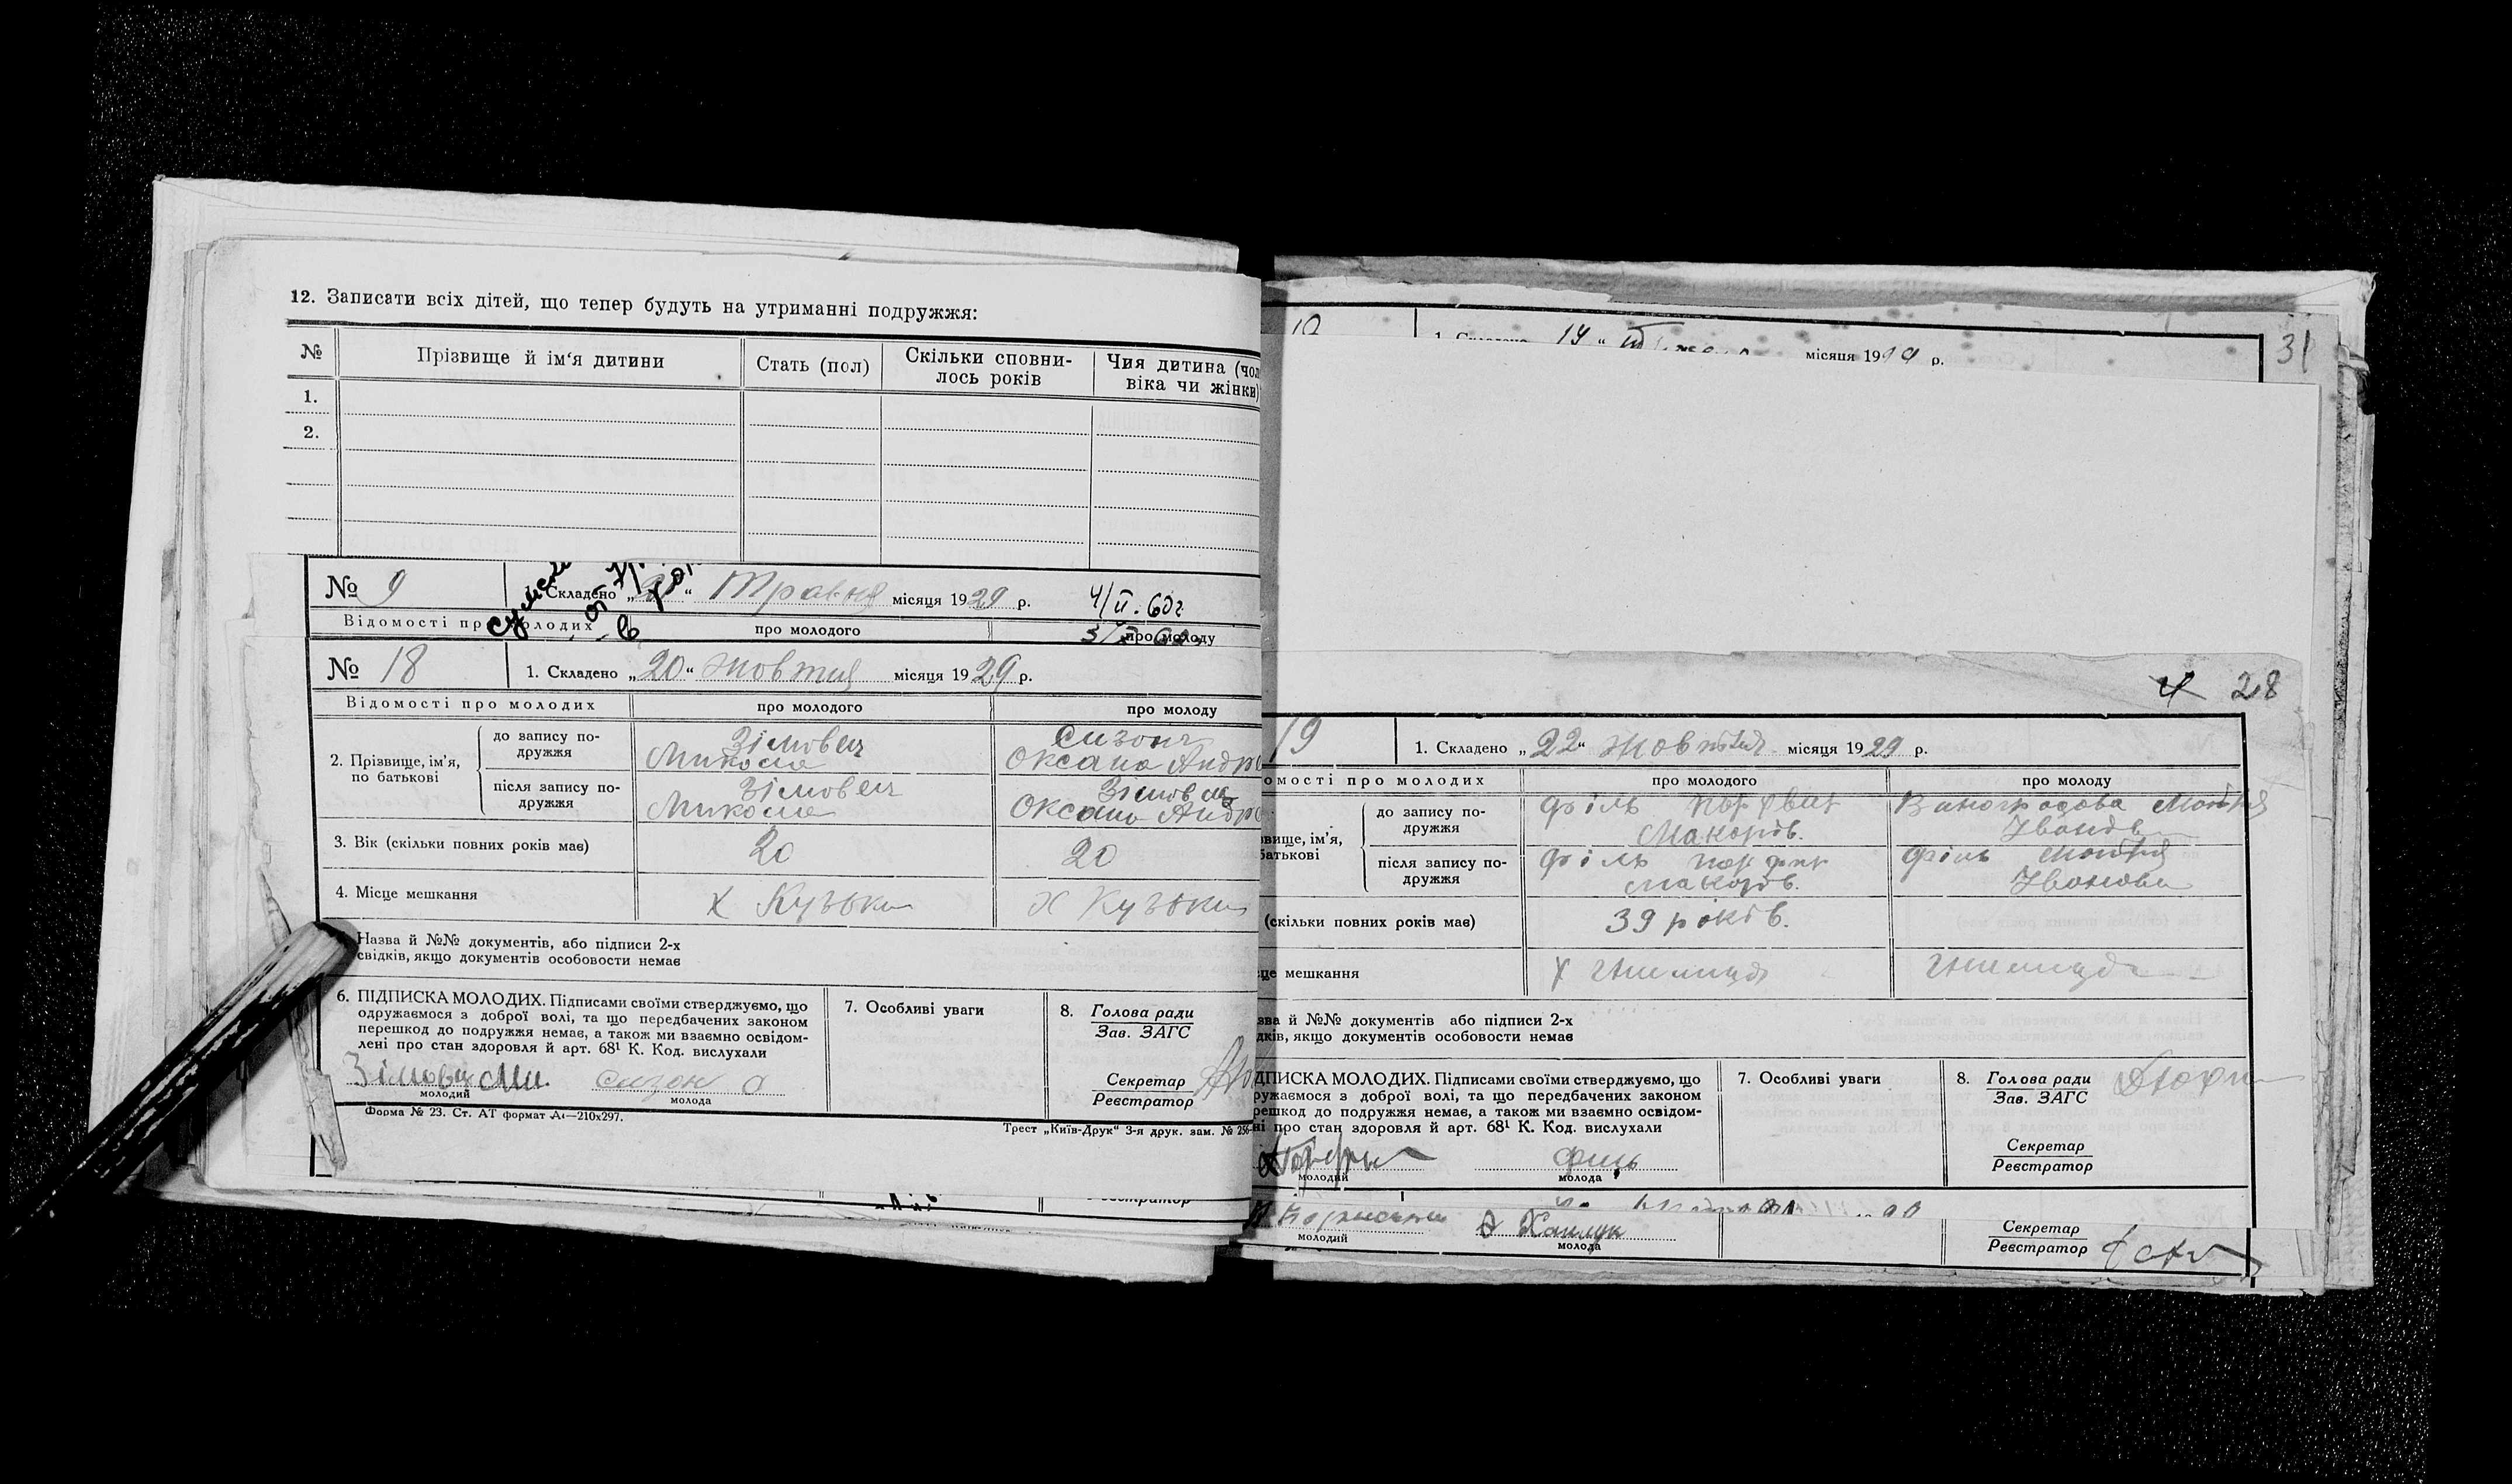 12. Записати всіх дітей, що тепер будуть на утриманні подружжя:
№ Прізвище й ім'я дитини Стать (пол) Скільки сповни- Чия дитина (чол
лось років віка чи жінки)
1.
2.
№ 9 Складено „ “ Травня місяця 1929 р. 4/II.60г
Відомості про молодих про молодого про молоду
№ 18 1. Складено „20“ Жовтня місяця 1929 р.
Відомості про молодих про молодого про молоду
2. Прізвище, ім'я, по батькові
до запису по-
дружжя
Зімовец
Микола
Сизон
Оксана Андр
після запису по-
дружжя
Зімовец
Микола
Зімовец
Оксана Андр
3. Вік (скільки повних років має) 20 20
4. Місце мешкання х Кузьки х Кузьки
Назва й №№ документів, або підписи 2-х
свідків, якщо документів особовости немає
6. ПІДПИСКА МОЛОДИХ. Підписами своїми стверджуємо, що
одружаємося з доброї волі, та що передбачених законом
перешкод до подружжя немає, а також ми взаємно освідом-
лені про стан здоровля й арт. 68¹ К. Код. вислухали
Зімовец Ми. сизон О
молодий молода
7. Особливі уваги
8. Голова ради
Зав. ЗАГС
Секретар
Реєстратор
Форма № 23. Ст. АТ формат А4—210х297.
Трест „Київ-Друк“ 3-я друк. зам. № 256
Реєстратор
10 1. Складено 14 “ місяця 19 р.
31
28
19 1. Складено „22“ Жовтня місяця 1929 р.
омості про молодих про молодого про молоду
звище, ім'я,
батькові
до запису по-
дружжя
Філь
Макоров.
Виноградова Мотря
Іванов
після запису по-
дружжя
Філь
Макоров.
Філь Мотря
Іванова
(скільки повних років має) 39 років.
це мешкання х Гнилиця Гнилиця
зва й №№ документів або підписи 2-х
дків, якщо документів особовости немає
ДПИСКА МОЛОДИХ. Підписами своїми стверджуємо, що
ружаємося з доброї волі, та що передбачених законом
решкод до подружжя немає, а також ми взаємно освідом-
ні про стан здоровля й арт. 68¹ К. Код. вислухали
Філь
молодий молода
7. Особливі уваги
8. Голова ради
Зав. ЗАГС
Секретар
Реєстратор
молодий молода
Секретар
Реєстратор